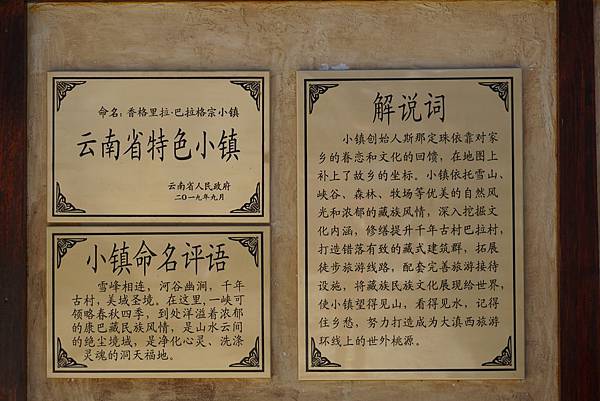 命名：香格里拉·巴拉格宗小镇
云南省特色小镇
云南省人民政府
二〇一九年九月
小镇命名评语
雪峰相连，河谷幽涧，千年
古村，美域圣境。在这里，一峡可
领略春秋四季，到处洋溢着浓郁
的康巴藏民族风情，是山水云间
的绝尘境域，是净化心灵、洗涤
灵魂的洞天福地。
解说词
小镇创始人斯那定珠依靠对家
乡的眷恋和文化的回馈，在地图上
补上了故乡的坐标。小镇依托雪山、
峡谷、森林、牧场等优美的自然风
光和浓郁的藏族风情，深入挖掘文
化内涵，修缮提升千年古村巴拉村，
打造错落有致的藏式建筑群，拓展
徒步旅游线路，配套完善旅游接待
设施，将藏族民族文化展现给世界，
使小镇望得见山，看得见水，记得
住乡愁，努力打造成为大滇西旅游
环线上的世外桃源。